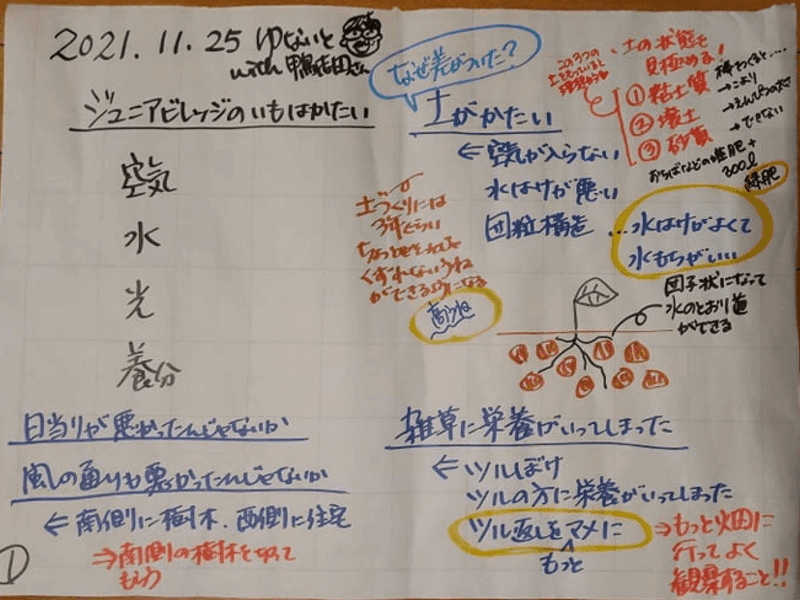 2021.11.25 ゆないと
with 鴨志田さん
ジュニアビレッジのいもはかたい
空気
水
光
養分
日当りが悪かったんじゃないか
風しの通りも悪かったんじゃないか
← 南側に樹木、西側に住宅
⇒ 南側の樹木を切って
もらう
①
なぜ差がついた?
土がかたい
← 空気が入らない
水はけが悪い
団粒構造
…水はけがよくて
水もちがいい
この3つの
土をもっていると
土の状態を
見極める!
① 粘土質
② 壌土
③ 砂質
棒をつくると……
→こより
→えんぴつの太さ
→できない
おちばなどの堆肥+
300ℓ
緑肥
土づくりには
3年くらい
くずれないうね
ができるようになる
高うね
団子状になって
水のとおり道
ができる
雑草に栄養がいってしまった
← ツルぼけ
ツルの方に栄養がいってしまった
ツル返しをマメに
もっと
⇒ もっと畑に
行ってよく
観察すること!!